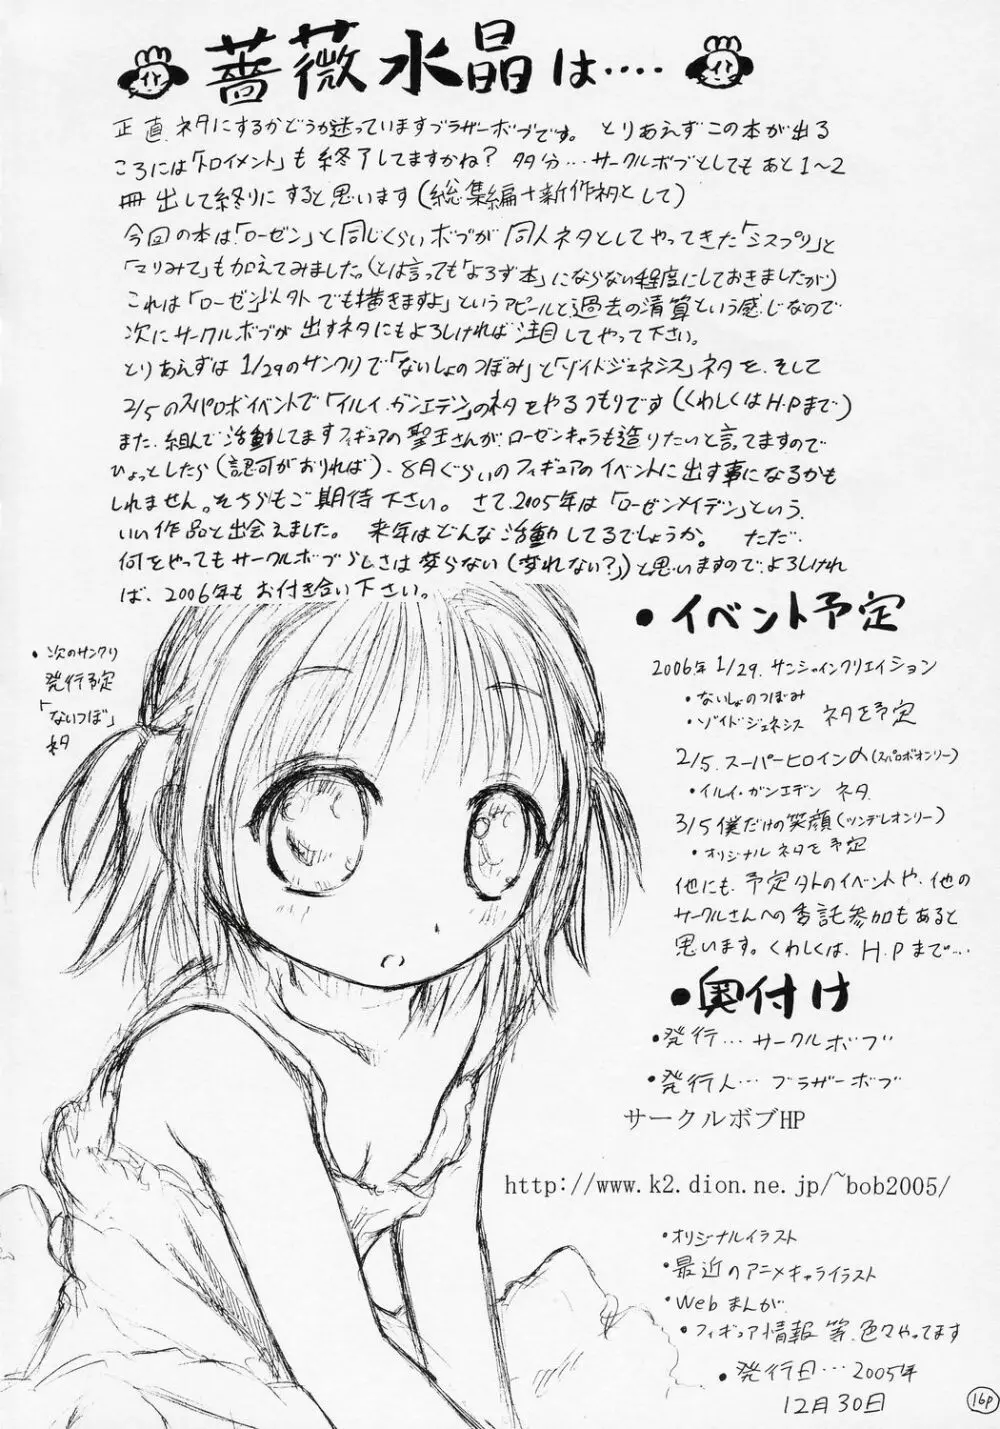 薔薇水晶は‥‥
正直、ネタにするかどうか迷っていますブラザーボブです。 とりあえずこの本が出る
ころには「トロイメント」も終了してますかね? 多分…サークルボブとしてもあと1〜2
冊出して終りにすると思います(総集編+新作ネタとして)
今回の本は「ローゼン」と同じくらいボブが同人ネタとしてやってきた「シスプリ」と
「マリみて」も加えてみました。(とは言っても「よろず本」にならない程度にしておきましたが)
これは「ローゼン」以外でも描きますよ」というアピールと過去の清算という感じなので
次にサークルボブが出すネタにもよろしければ注目してやって下さい。
とりあえずは1/29のサンクリで「ないしょのつぼみ」と「ゾイドジェネシス」ネタを、そして
2/5のスパロボイベントで「イルイ・ガンエデン」のネタをやるつもりです(くわしくはH.Pまで)
また、組んで活動してますフィギュアの聖王さんが、ローゼンキャラも造りたいと言ってますので
ひょっとしたら(認可がおりれば)、8月ぐらいのフィギュアのイベントに出す事になるかも
しれません。そちらもご期待下さい。 さて、2005年は「ローゼンメイデン」という、
いい作品と出会えました。 来年はどんな活動してるでしょうか。 ただ、
何をやってもサークルボブらしさは変らない(変れない?)と思いますので、よろしけれ
ば、2006年もお付き合い下さい。
・次のサンクリ
発行予定
「ないつぼ」
ネタ
・イベント予定
2006年 1/29. サンシャインクリエイション
・ないしょのつぼみ
・ゾイドジェネシス ネタを予定
2/5. スーパーヒロインの(スパロボオンリー)
・イルイ・ガンエデン ネタ
3/5 僕だけの笑顔(ツンデレオンリー)
・オリジナルネタを予定
他にも、予定外のイベントや、他の
サークルさんへの委託参加もあると
思います。くわしくは、H.Pまで…
・奥付け
・発行…サークルボブ
・発行人…ブラザーボブ
サークルボブHP
http://www.k2.dion.ne.jp/~bob2005/
・オリジナルイラスト
・最近のアニメキャライラスト
・Webまんが
・フィギュア情報 等、色々やってます
・発行日…2005年
12月30日
16P